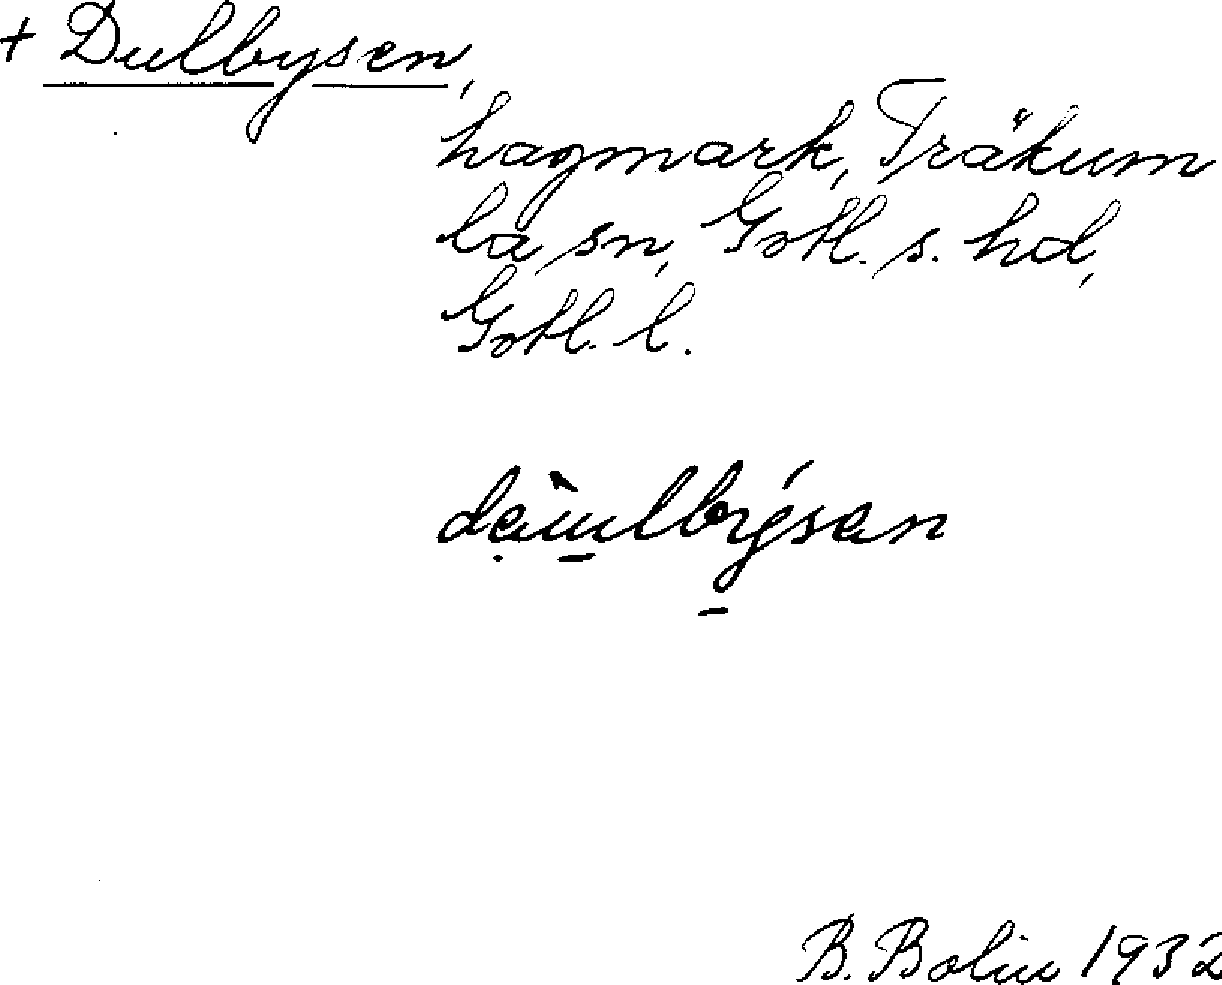 + Dulbysen,
hagmark, Träkum
la sn, Gotl. s. hd,
Gotl. l.
B. Bolin 1932